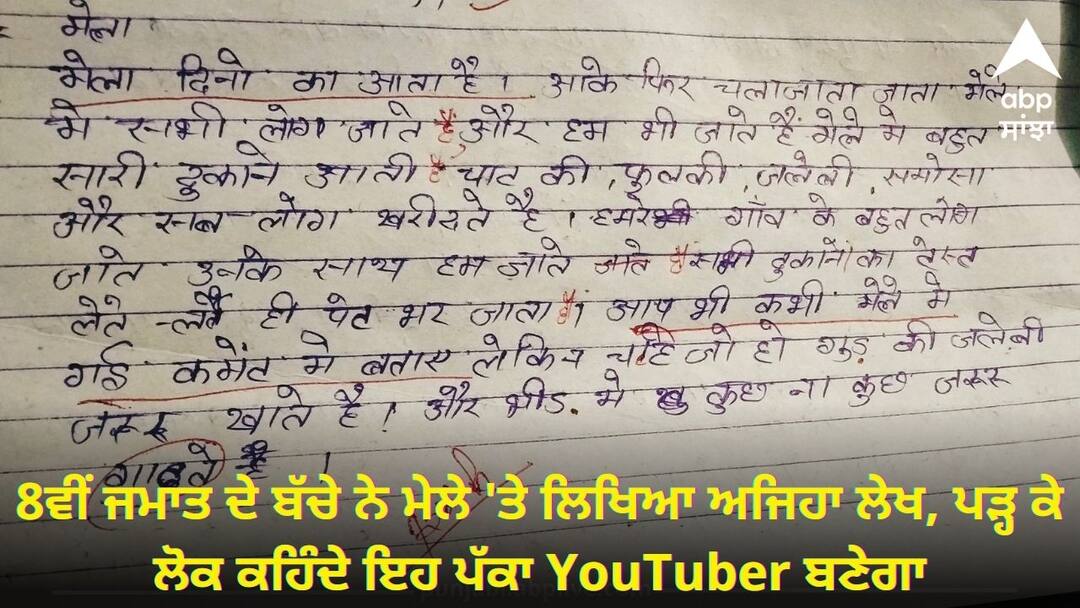 मेला
मेला दिनो का आता है। आके फिर चलाजाता जाता मेले
मे सभी लोग जाते हैं और हम भी जाते हैं मेले मे बहुत
सारी दुकाने आती है चाट की, फुलकी, जलेबी, समोसा
और सब लोग खरीदते है। हमरे गाँव के बहुत लोग
जाते उनके साथ हम जाते जाते है सभी दुकानो का टेस्ट
लेते -लेते ही पेट भर जाता है। आप भी कभी मेले मे
गई कमेंट मे बताए लेकिन चाहे जो हो गुड़ की जलेबी
जरूर खाते है! और भीड़ मे कुछ ना कुछ जरूर
है !
abp
ਸਾਂਝਾ
8ਵੀਂ ਜਮਾਤ ਦੇ ਬੱਚੇ ਨੇ ਮੇਲੇ 'ਤੇ ਲਿਖਿਆ ਅਜਿਹਾ ਲੇਖ, ਪੜ੍ਹ ਕੇ
ਲੋਕ ਕਹਿੰਦੇ ਇਹ ਪੱਕਾ YouTuber ਬਣੇਗਾ